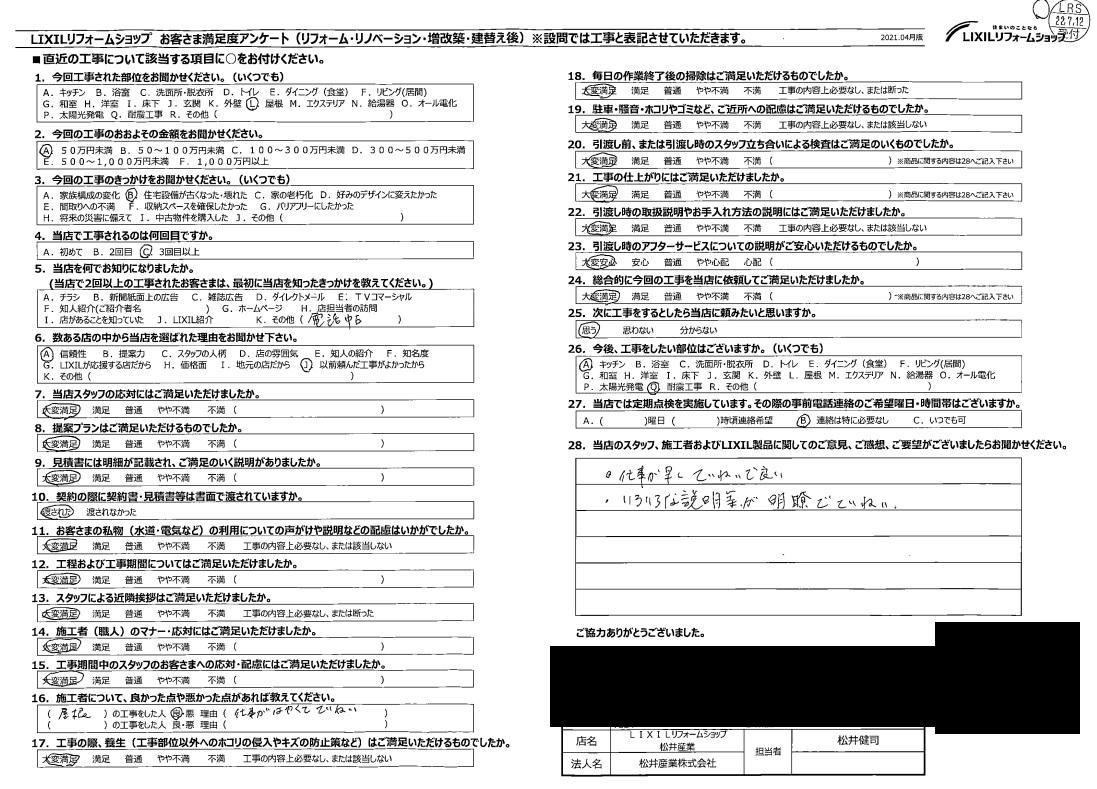 LRS
22.7.12
受付
LIXILリフォームショップ お客さま満足度アンケート（リフォーム・リノベーション・増改築・建替え後）※設問では工事と表記させていただきます。
2021.04月版
住まいのことなら
LIXILリフォームショップ
■直近の工事について該当する項目に○をお付けください。
1．今回工事された部位をお聞かせください。（いくつでも）
A．キッチン B．浴室 C．洗面所・脱衣所 D．トイレ E．ダイニング（食堂） F．リビング(居間)
G．和室 H．洋室 I．床下 J．玄関 K．外壁 L．屋根 M．エクステリア N．給湯器 O．オール電化
P．太陽光発電 Q．耐震工事 R．その他（ ）
2．今回の工事のおおよその金額をお聞かせください。
A．50万円未満 B．50～100万円未満 C．100～300万円未満 D．300～500万円未満
E．500～1,000万円未満 F．1,000万円以上
3．今回の工事のきっかけをお聞かせください。（いくつでも）
A．家族構成の変化 B．住宅設備が古くなった・壊れた C．家の老朽化 D．好みのデザインに変えたかった
E．間取りへの不満 F．収納スペースを確保したかった G．バリアフリーにしたかった
H．将来の災害に備えて I．中古物件を購入した J．その他（ ）
4．当店で工事されるのは何回目ですか。
A．初めて B．2回目 C．3回目以上
5．当店を何でお知りになりましたか。
（当店で2回以上の工事されたお客さまは、最初に当店を知ったきっかけを教えてください。）
A．チラシ B．新聞紙面上の広告 C．雑誌広告 D．ダイレクトメール E．TVコマーシャル
F．知人紹介(ご紹介者名 ) G．ホームページ H．店担当者の訪問
I．店があることを知っていた J．LIXIL紹介 K．その他（ ）
6．数ある店の中から当店を選ばれた理由をお聞かせ下さい。
A．信頼性 B．提案力 C．スタッフの人柄 D．店の雰囲気 E．知人の紹介 F．知名度
G．LIXILが応援する店だから H．価格面 I．地元の店だから J．以前頼んだ工事がよかったから
K．その他（ ）
7．当店スタッフの応対にはご満足いただけましたか。
大変満足 満足 普通 やや不満 不満（ ）
8．提案プランはご満足いただけるものでしたか。
大変満足 満足 普通 やや不満 不満（ ）
9．見積書には明細が記載され、ご満足のいく説明がありましたか。
大変満足 満足 普通 やや不満 不満（ ）
10．契約の際に契約書・見積書等は書面で渡されていますか。
渡された 渡されなかった
11．お客さまの私物（水道・電気など）の利用についての声がけや説明などの配慮はいかがでしたか。
大変満足 満足 普通 やや不満 不満 工事の内容上必要なし、または該当しない
12．工程および工事期間についてはご満足いただけましたか。
大変満足 満足 普通 やや不満 不満（ ）
13．スタッフによる近隣挨拶はご満足いただけましたか。
大変満足 満足 普通 やや不満 不満 工事の内容上必要なし、または断った
14．施工者（職人）のマナー・応対にはご満足いただけましたか。
大変満足 満足 普通 やや不満 不満（ ）
15．工事期間中のスタッフのお客さまへの応対・配慮にはご満足いただけましたか。
大変満足 満足 普通 やや不満 不満（ ）
16．施工者について、良かった点や悪かった点があれば教えてください。
（ 屋根 ）の工事をした人 良・悪 理由（ 仕事がはやくてていねい ）
（ ）の工事をした人 良・悪 理由（ ）
17．工事の際、養生（工事部位以外へのホコリの侵入やキズの防止策など）はご満足いただけるものでしたか。
大変満足 満足 普通 やや不満 不満 工事の内容上必要なし、または該当しない
18．毎日の作業終了後の掃除はご満足いただけるものでしたか。
大変満足 満足 普通 やや不満 不満 工事の内容上必要なし、または断った
19．駐車・騒音・ホコリやゴミなど、ご近所への配慮はご満足いただけるものでしたか。
大変満足 満足 普通 やや不満 不満 工事の内容上必要なし、または該当しない
20．引渡し前、または引渡し時のスタッフ立ち合いによる検査はご満足のいくものでしたか。
大変満足 満足 普通 やや不満 不満（ ）※商品に関する内容は28へご記入下さい
21．工事の仕上がりにはご満足いただけましたか。
大変満足 満足 普通 やや不満 不満（ ）※商品に関する内容は28へご記入下さい
22．引渡し時の取扱説明やお手入れ方法の説明にはご満足いただけましたか。
大変満足 満足 普通 やや不満 不満 工事の内容上必要なし、または該当しない
23．引渡し時のアフターサービスについての説明がご安心いただけるものでしたか。
大変安心 安心 普通 やや心配 心配（ ）
24．総合的に今回の工事を当店に依頼してご満足いただけましたか。
大変満足 満足 普通 やや不満 不満（ ）※商品に関する内容は28へご記入下さい
25．次に工事をするとしたら当店に頼みたいと思いますか。
思う 思わない 分からない
26．今後、工事をしたい部位はございますか。（いくつでも）
A．キッチン B．浴室 C．洗面所・脱衣所 D．トイレ E．ダイニング（食堂） F．リビング(居間)
G．和室 H．洋室 I．床下 J．玄関 K．外壁 L．屋根 M．エクステリア N．給湯器 O．オール電化
P．太陽光発電 Q．耐震工事 R．その他（ ）
27．当店では定期点検を実施しています。その際の事前電話連絡のご希望曜日・時間帯はございますか。
A．（ ）曜日（ ）時頃連絡希望 B．連絡は特に必要なし C．いつでも可
28．当店のスタッフ、施工者およびLIXIL製品に関してのご意見、ご感想、ご要望がございましたらお聞かせください。
・仕事が早くていねいで良い
・いろいろな説明等が明瞭でていねい．
ご協力ありがとうございました。
店名 LIXILリフォームショップ 松井産業 担当者 松井健司
法人名 松井産業株式会社